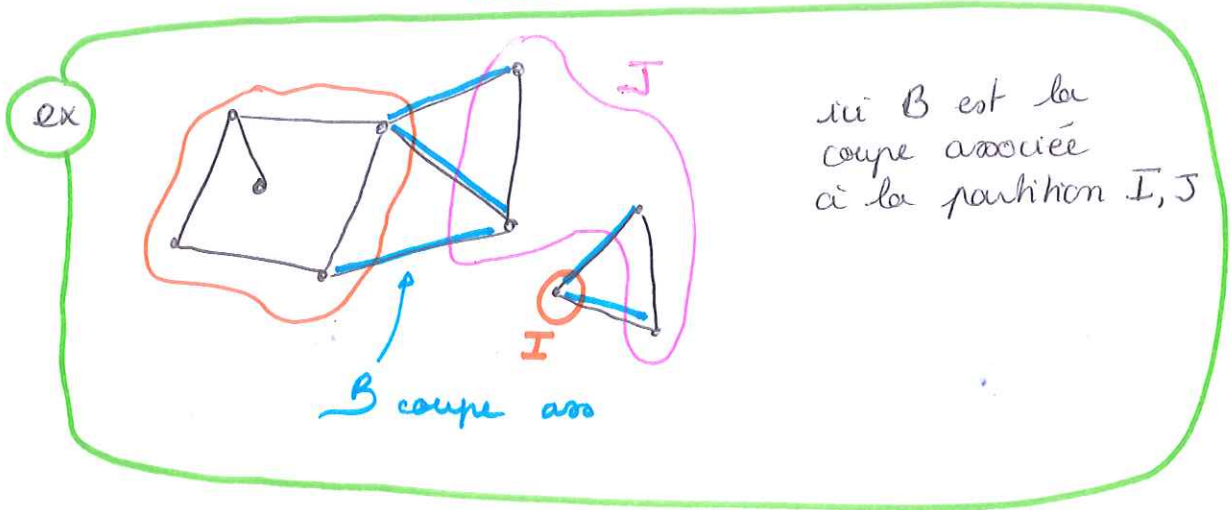 ex
J
ici B est la
coupe associée
à la partition I, J
I
B coupe ass